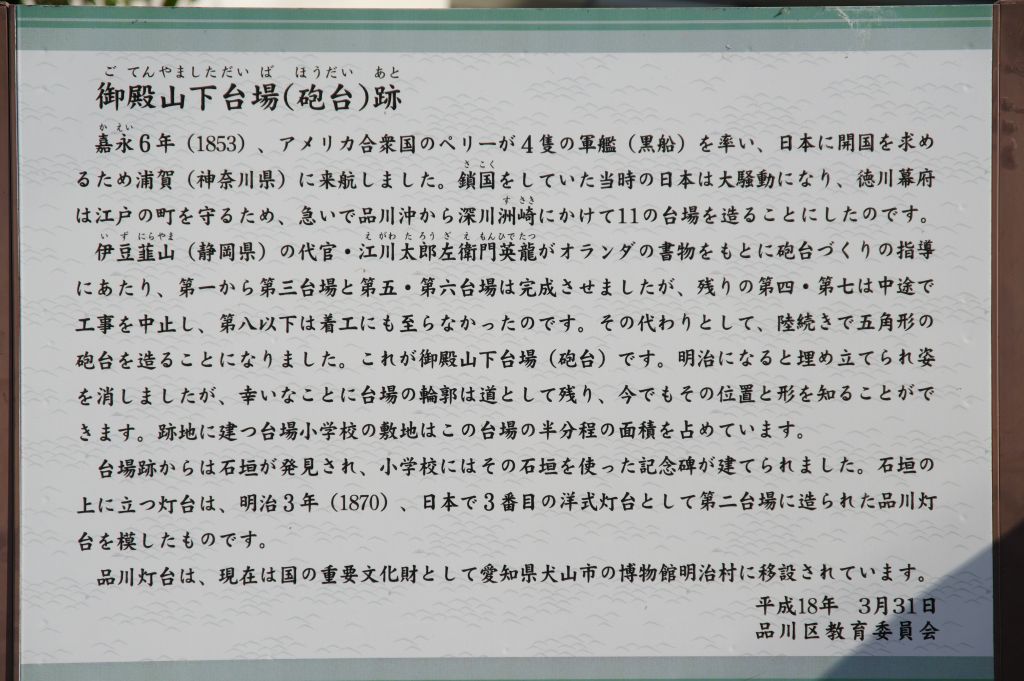 ごてんやましただいば ほうだい あと
御殿山下台場(砲台)跡
かえい
嘉永6年（1853）、アメリカ合衆国のペリーが4隻の軍艦（黒船）を率い、日本に開国を求め
るため浦賀（神奈川県）に来航しました。鎖国をしていた当時の日本は大騒動になり、徳川幕府
さこく
は江戸の町を守るため、急いで品川沖から深川洲崎にかけて11の台場を造ることにしたのです。
すさき
伊豆韮山（静岡県）の代官・江川太郎左衛門英龍がオランダの書物をもとに砲台づくりの指導
いずにらやま えがわたろうざえもんひでたつ
にあたり、第一から第三台場と第五・第六台場は完成させましたが、残りの第四・第七は中途で
工事を中止し、第八以下は着工にも至らなかったのです。その代わりとして、陸続きで五角形の
砲台を造ることになりました。これが御殿山下台場（砲台）です。明治になると埋め立てられ姿
を消しましたが、幸いなことに台場の輪郭は道として残り、今でもその位置と形を知ることがで
きます。跡地に建つ台場小学校の敷地はこの台場の半分程の面積を占めています。
台場跡からは石垣が発見され、小学校にはその石垣を使った記念碑が建てられました。石垣の
上に立つ灯台は、明治3年（1870）、日本で3番目の洋式灯台として第二台場に造られた品川灯
台を模したものです。
品川灯台は、現在は国の重要文化財として愛知県犬山市の博物館明治村に移設されています。
平成18年 3月31日
品川区教育委員会